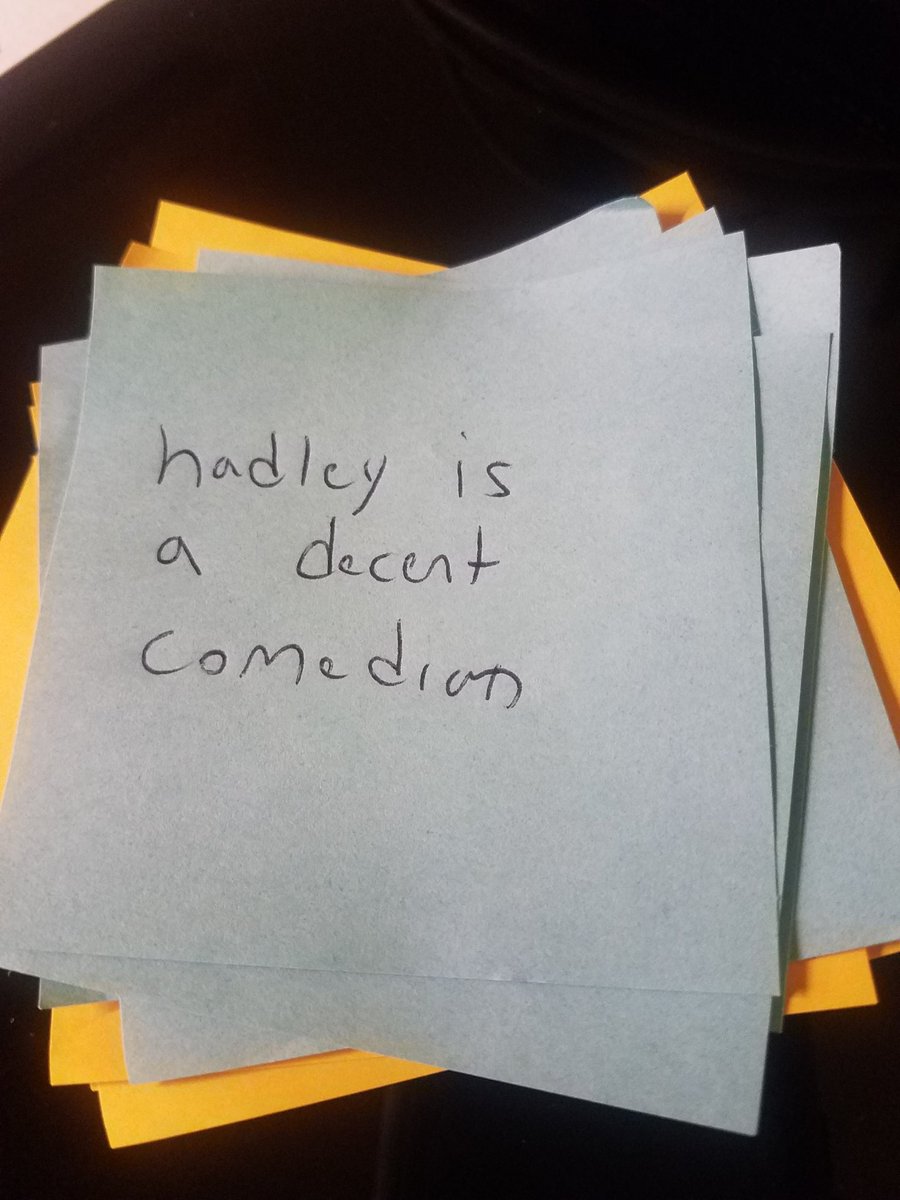 hadley is
a decent
comedian